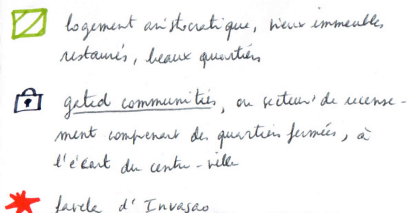 logement aristocratique, vieux immeubles
restaurés, beaux quartiers
gated communities, ou secteur de recense-
ment comprenant des quartiers fermées, à
l'écart du centre-ville
favela d'Invasao